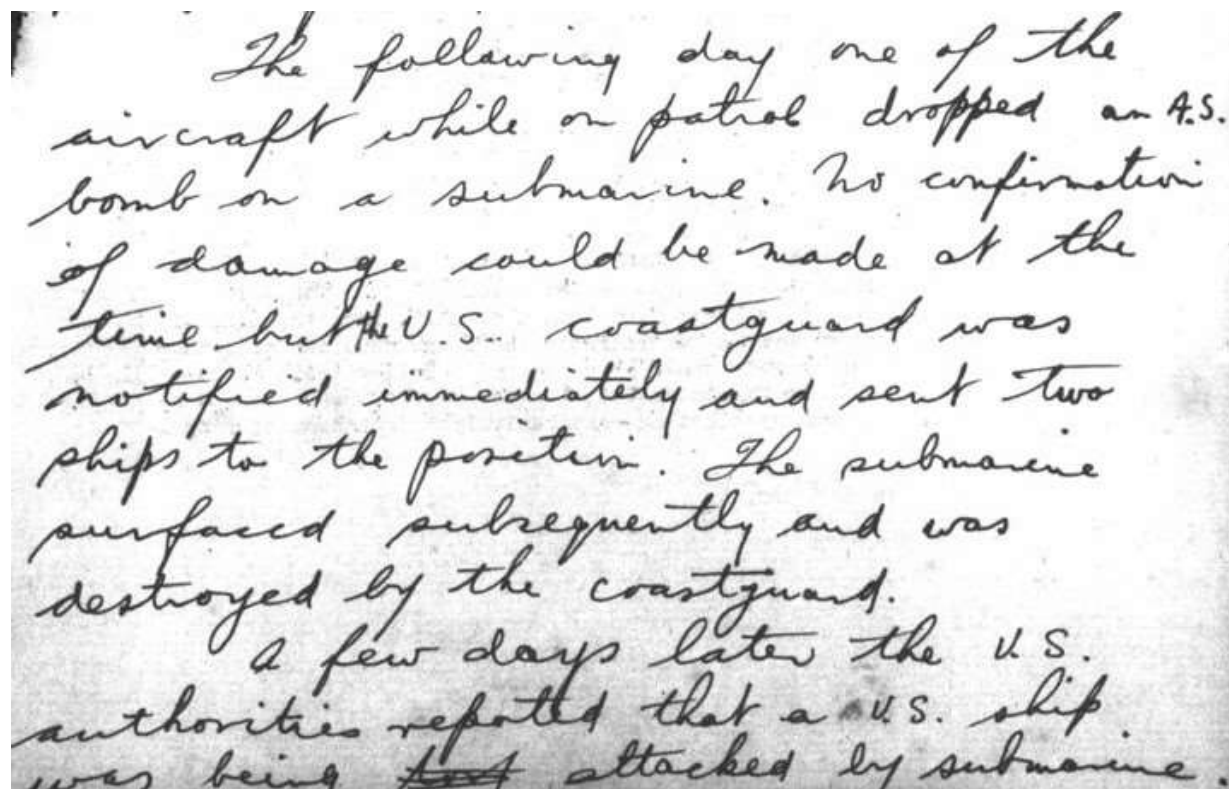 The following day one of the
aircraft while on patrol dropped an A.S.
bomb on a submarine. No confirmation
of damage could be made at the
time but the U.S. coastguard was
notified immediately and sent two
ships to the position. The submarine
surfaced subsequently and was
destroyed by the coastguard.
A few days later the U.S.
authorities reported that a U.S. ship
was being attacked by submarine.